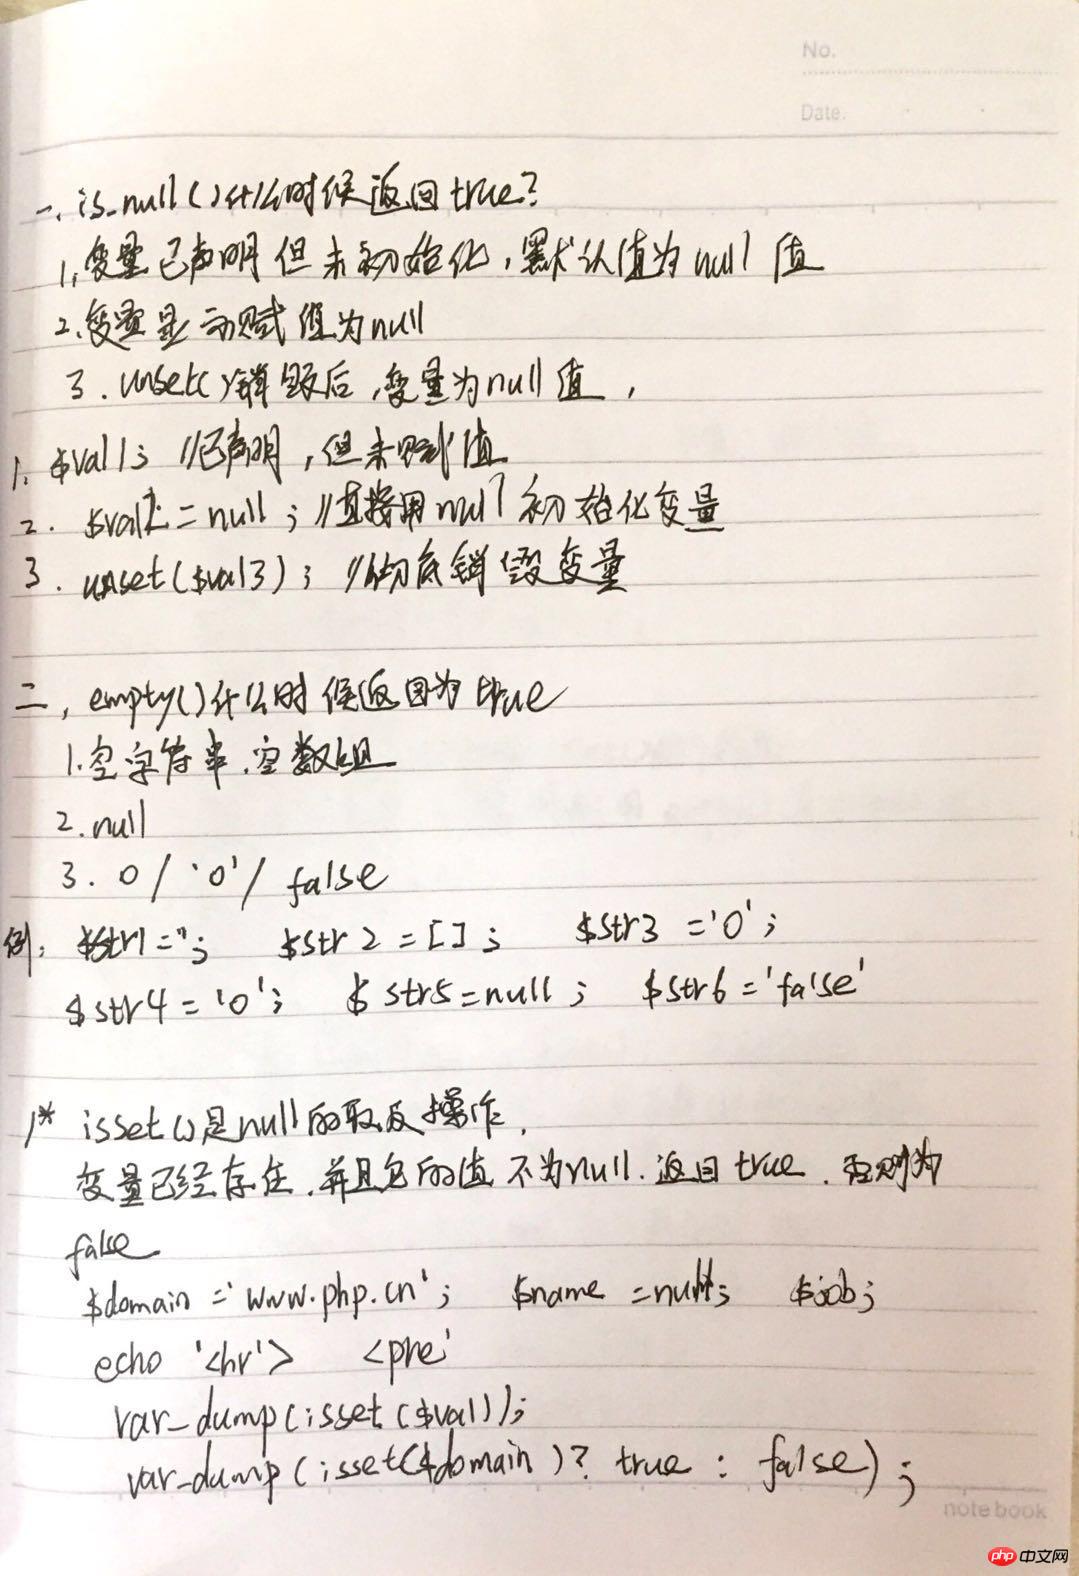 No.
Date.
一、is_null()什么时候返回true?
1.变量已声明但未初始化,默认值为null值
2.变量显示赋值为null
3.unset()销毁后,变量为null值,
1. $val1; //已声明,但未赋值
2. $val2=null; //直接用null初始化变量
3. unset($val3); //彻底销毁变量
二,empty()什么时候返回为true
1.空字符串.空数组
2.null
3. 0/'0'/ false
例: $str1=''; $str2=[]; $str3='0';
$str4='0'; $str5=null; $str6='false'
/* isset()是null的取反操作,
变量已经存在.并且它的值不为null.返回true.否则为
false
$domain='www.php.cn'; $name=null; $job;
echo '<hr'> <pre'
var_dump(isset($val));
var_dump(isset($domain)? true : false);
notebook
php 中文网